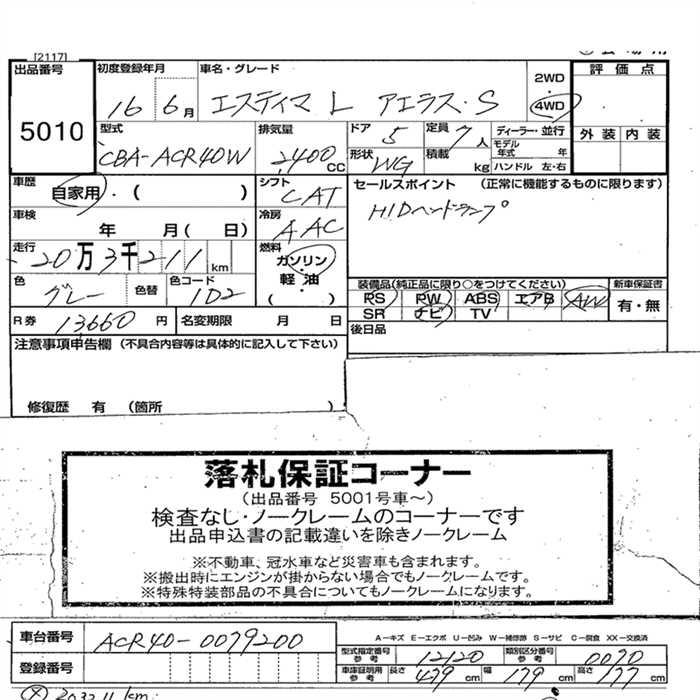 [2117]
出品番号 初度登録年月 車名・グレード 2WD 評価点
5010 16 6月 エスティマ L アエラス・S 4WD
型式 排気量 ドア 定員 ディーラー・並行 外装 内装
CBA-ACR40W 2400CC 5 7人 モデル年式 年
形状 WG 積載 kg ハンドル 左・右
車歴 自家用・( ) シフト CAT セールスポイント (正常に機能するものに限ります)
車検 年 月(日) 冷房 AAC HIDヘッドランプ
走行 20万3千211km 燃料 ガソリン・軽油( )
色 グレー 色替 色コード 1D2
装備品(純正品に限り○をつけてください) 新車保証書
PS PW ABS エアB AW 有・無
SR ナビ TV
R券 13660円 名変期限 月 日 後日品
注意事項申告欄 (不具合内容等は具体的に記入して下さい)
修復歴 有 (箇所 )
落札保証コーナー
(出品番号 5001号車~)
検査なし・ノークレームのコーナーです
出品申込書の記載違いを除きノークレーム
※不動車、冠水車など災害車も含まれます。
※搬出時にエンジンが掛からない場合でもノークレームです。
※特殊特装部品の不具合についてもノークレームになります。
車台番号 ACR40-0079200
A-キズ E-エクボ U-凹み W-補修跡 S-サビ C-腐食 XX-交換済
型式指定番号 参考 12120 類別区分番号 参考 0070
登録番号 車庫証明用 参考 長さ 479cm 幅 179cm 高さ 177cm